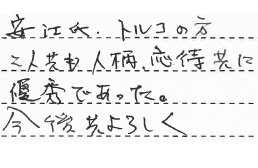 安江氏、トルコの方
二人共も人柄、応待共に
優秀であった。
今後共よろしく